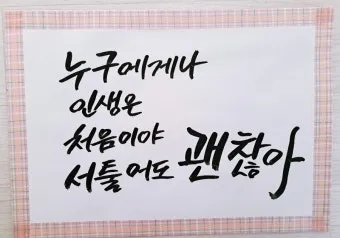 누구에게나
인생은
처음이야
서툴어도 괜찮아